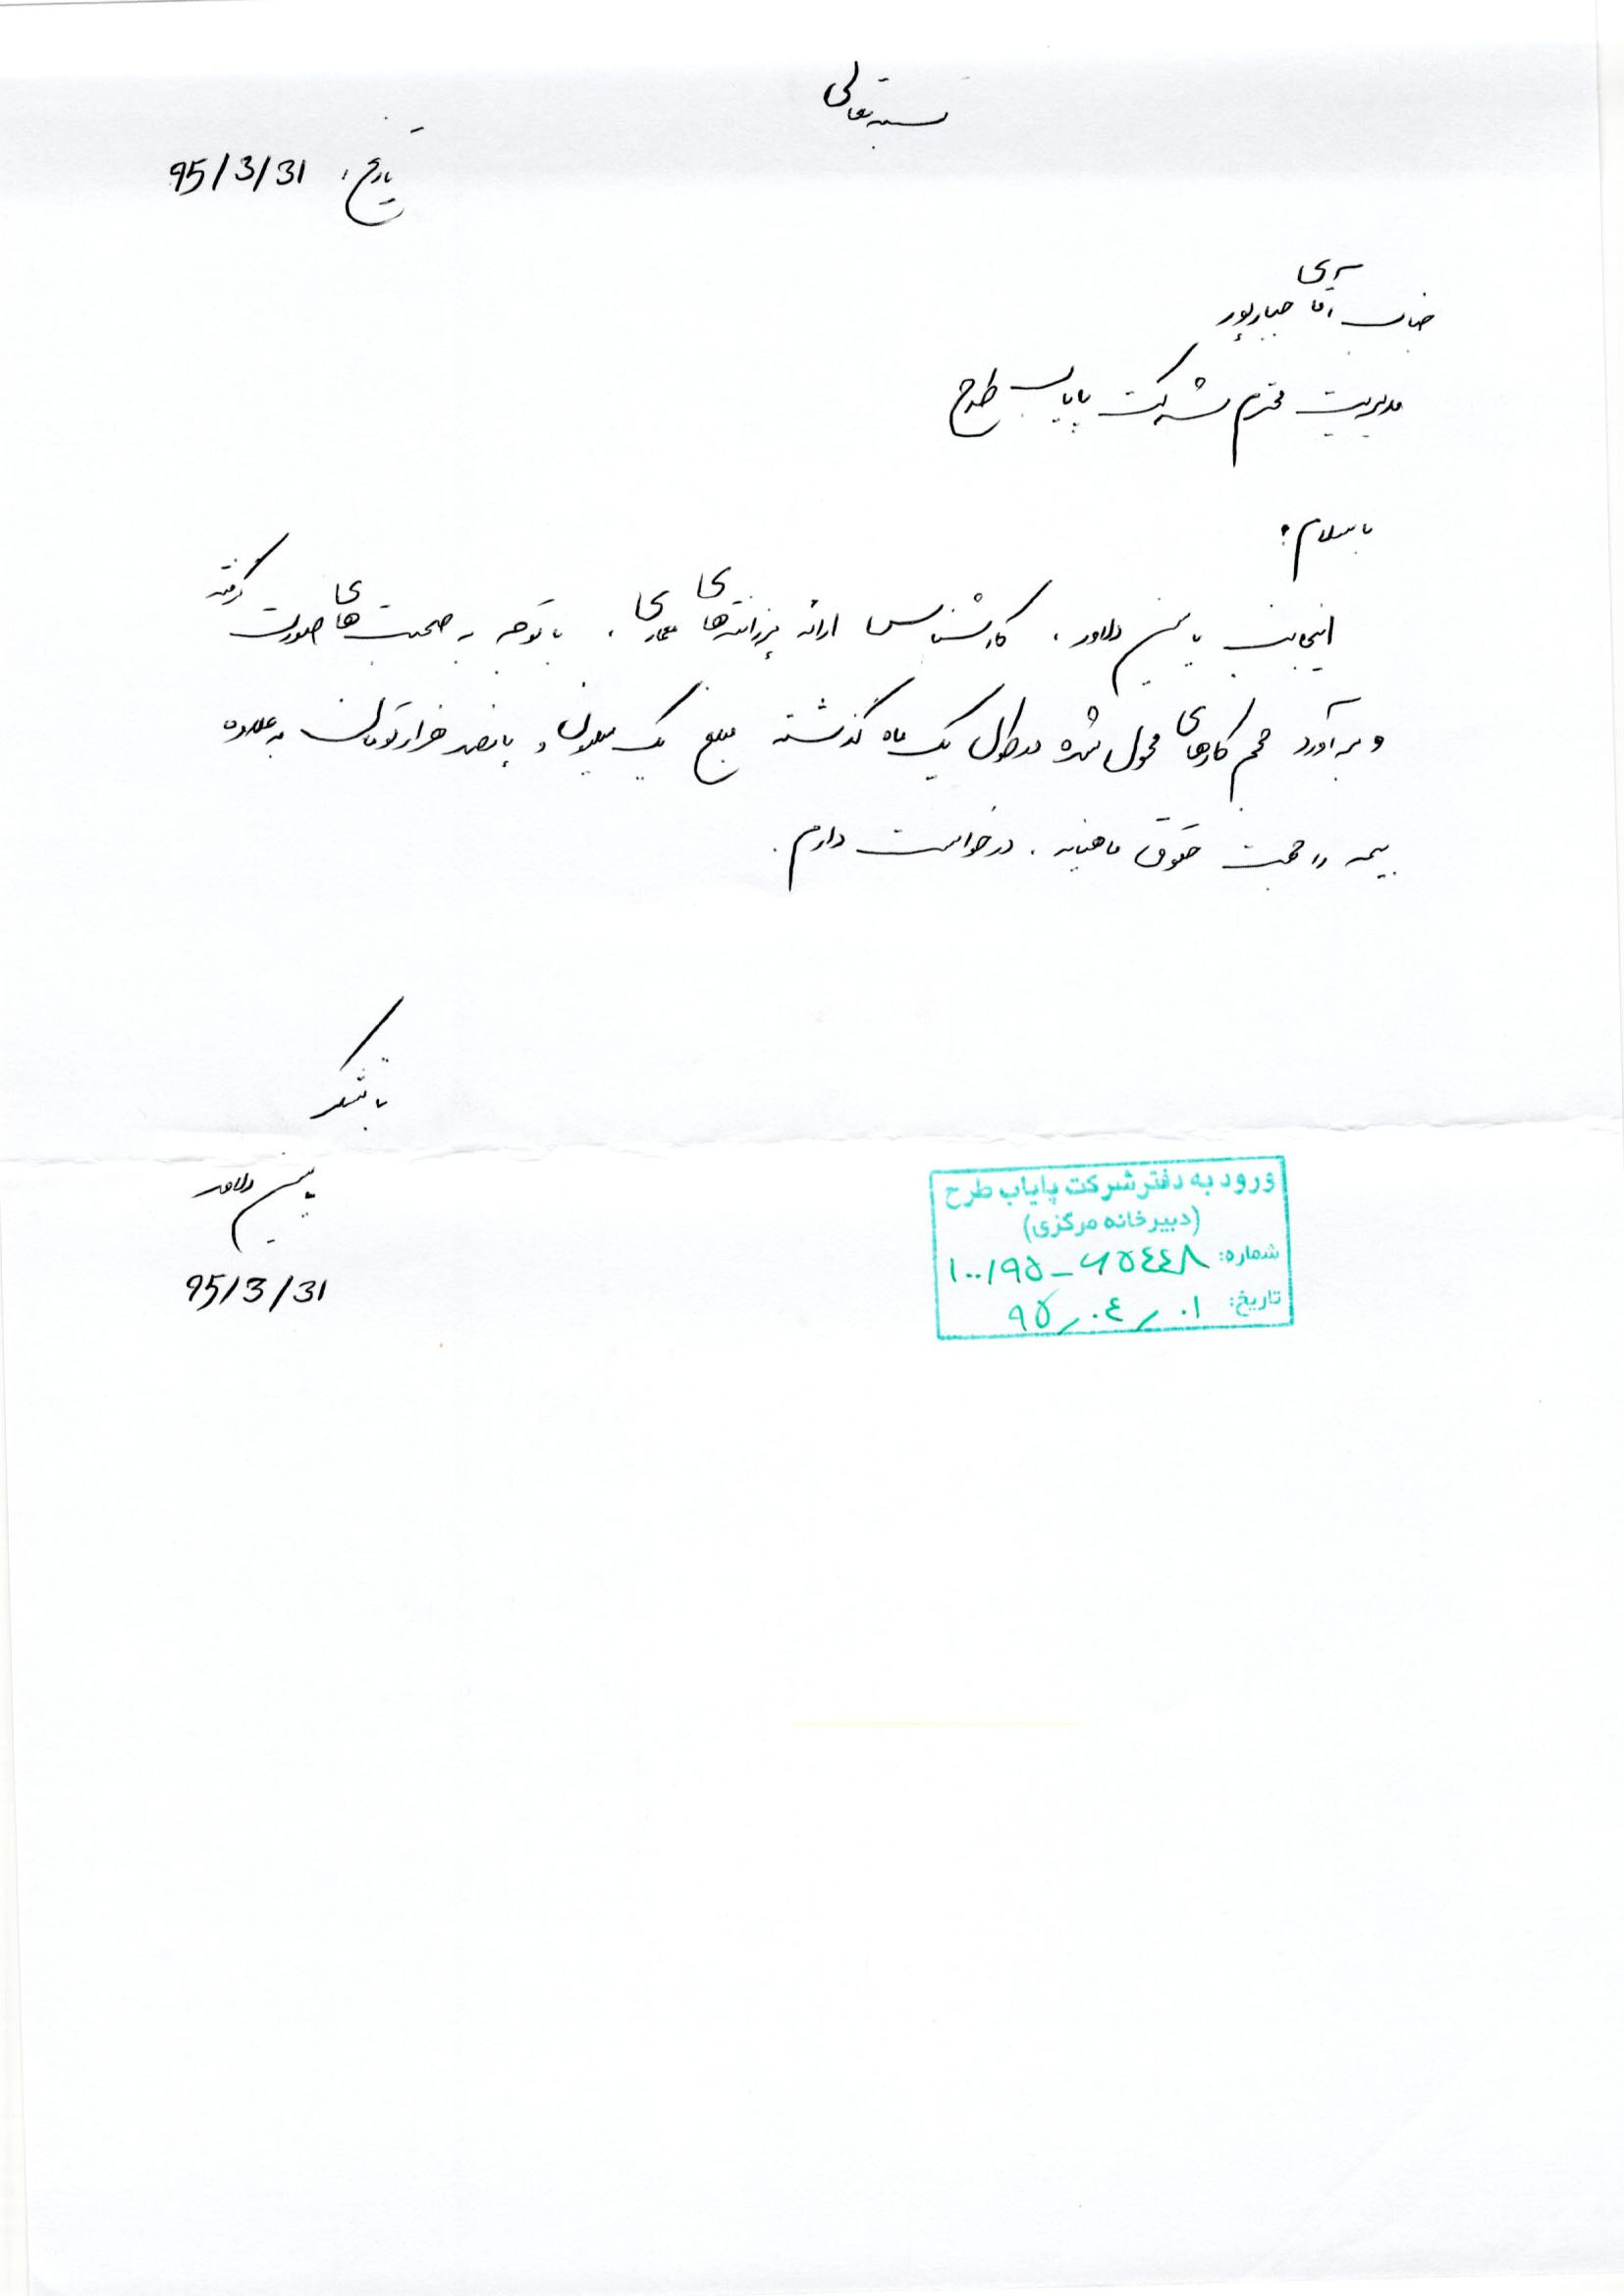 بسمه تعالی
تاریخ: 95/3/31
جناب آقای جبارپور
مدیریت محترم شرکت پایاب طرح
با سلام؛
اینجانب یاسمن دلاور، کارشناس ارائه پرزانته‌های معماری، با توجه به صحبت‌های صورت گرفته
و برآورد حجم کارهای محول شده در طول یک ماه گذشته مبلغ یک میلیون و پانصد هزار تومان به علاوه
بیمه را جهت حقوق ماهیانه، درخواست دارم.
با تشکر
یاسمن دلاور
95/3/31
ورود به دفتر شرکت پایاب طرح
(دبیرخانه مرکزی)
شماره: ۱۰۰/۹۵-۶۵۴۴۸
تاریخ: ۹۵/۰۴/۰۱